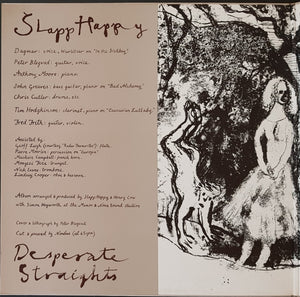 Slapp Happy
Dagmar: voice, Wurlitzer on "In the Sickbay"
Peter Blegvad: guitar, voice
Anthony Moore: piano
John Greaves: bass guitar, piano on "Bad Alchemy"
Chris Cutler: drums, etc.
Tim Hodgkinson: clarinet, piano on "Caucasian Lullaby"
Fred Frith: guitar, violin.
Assisted by
Geoff Leigh flute.
Pierre Moerlen: percussion on "Europa"
Mongezi Feza: trumpet.
Nick Evans: trombone.
Lindsay Cooper: oboe & bassoon.
Album arranged & produced by Slapp Happy & Henry Cow
with Simon Heyworth, at the Manor & Nova Sound studios
Cover & lithograph by Peter Blegvad
Cut & pressed by Nimbus (at 45rpm)
Desperate
Straights